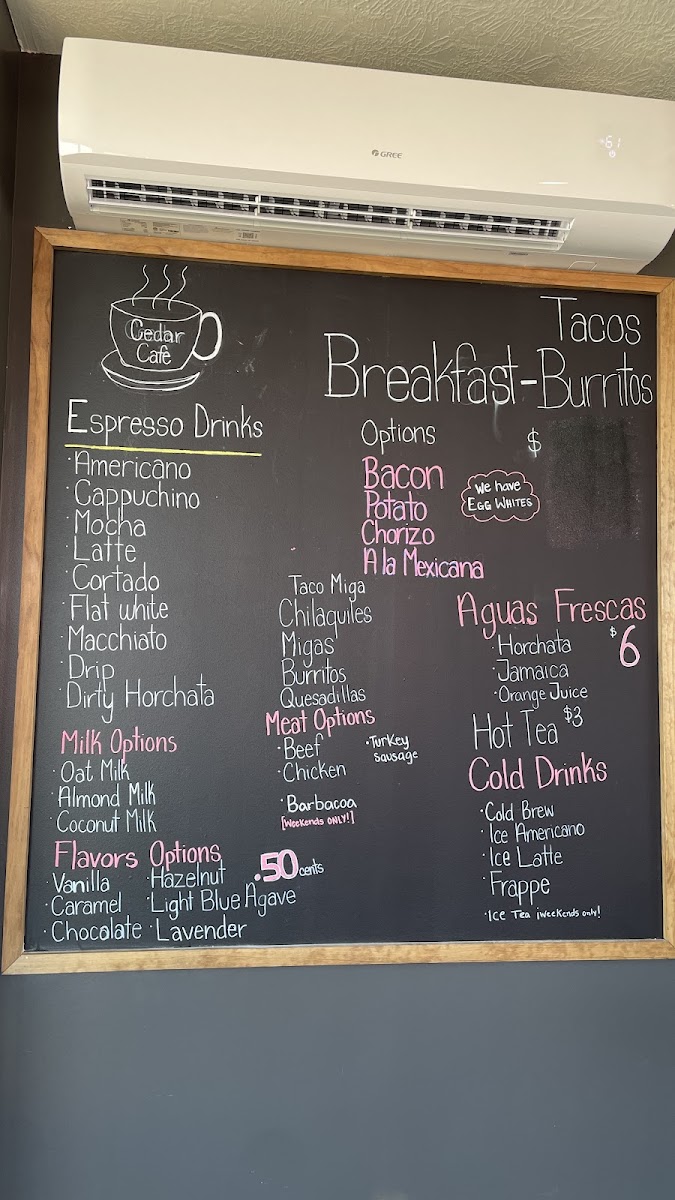 GREE
61
Cedar
Café
Tacos
Breakfast-Burritos
Espresso Drinks
·Americano
·Cappuchino
·Mocha
·Latte
·Cortado
·Flat white
·Macchiato
·Drip
·Dirty Horchata
Milk Options
·Oat Milk
·Almond Milk
·Coconut Milk
Flavors Options .50 cents
·Vanilla ·Hazelnut
·Caramel ·Light Blue Agave
·Chocolate ·Lavender
Options $
Bacon
Potato
Chorizo
A la Mexicana
We have
EGG WHITES
Taco Miga
Chilaquiles
Migas
Burritos
Quesadillas
Meat Options
·Beef
·Chicken
·Turkey
sausage
·Barbacoa
[Weekends ONLY!]
Aguas Frescas
$6
·Horchata
·Jamaica
·Orange Juice
Hot Tea $3
Cold Drinks
·Cold Brew
·Ice Americano
·Ice Latte
·Frappe
·Ice Tea ¡Weekends only!